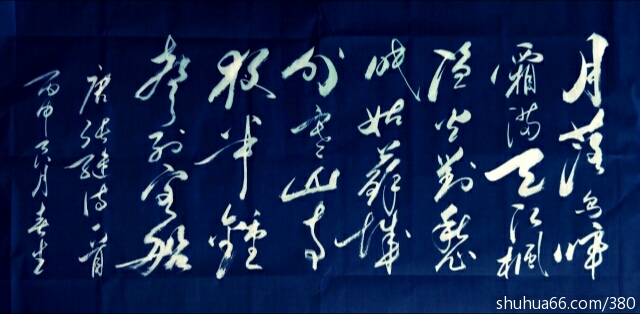 月落烏啼
霜满天江楓
渔火對愁
眠姑蘇城
外寒山寺
夜半鐘
聲到客船
唐张继诗一首
丙申六月春生
shuhua66.com/380